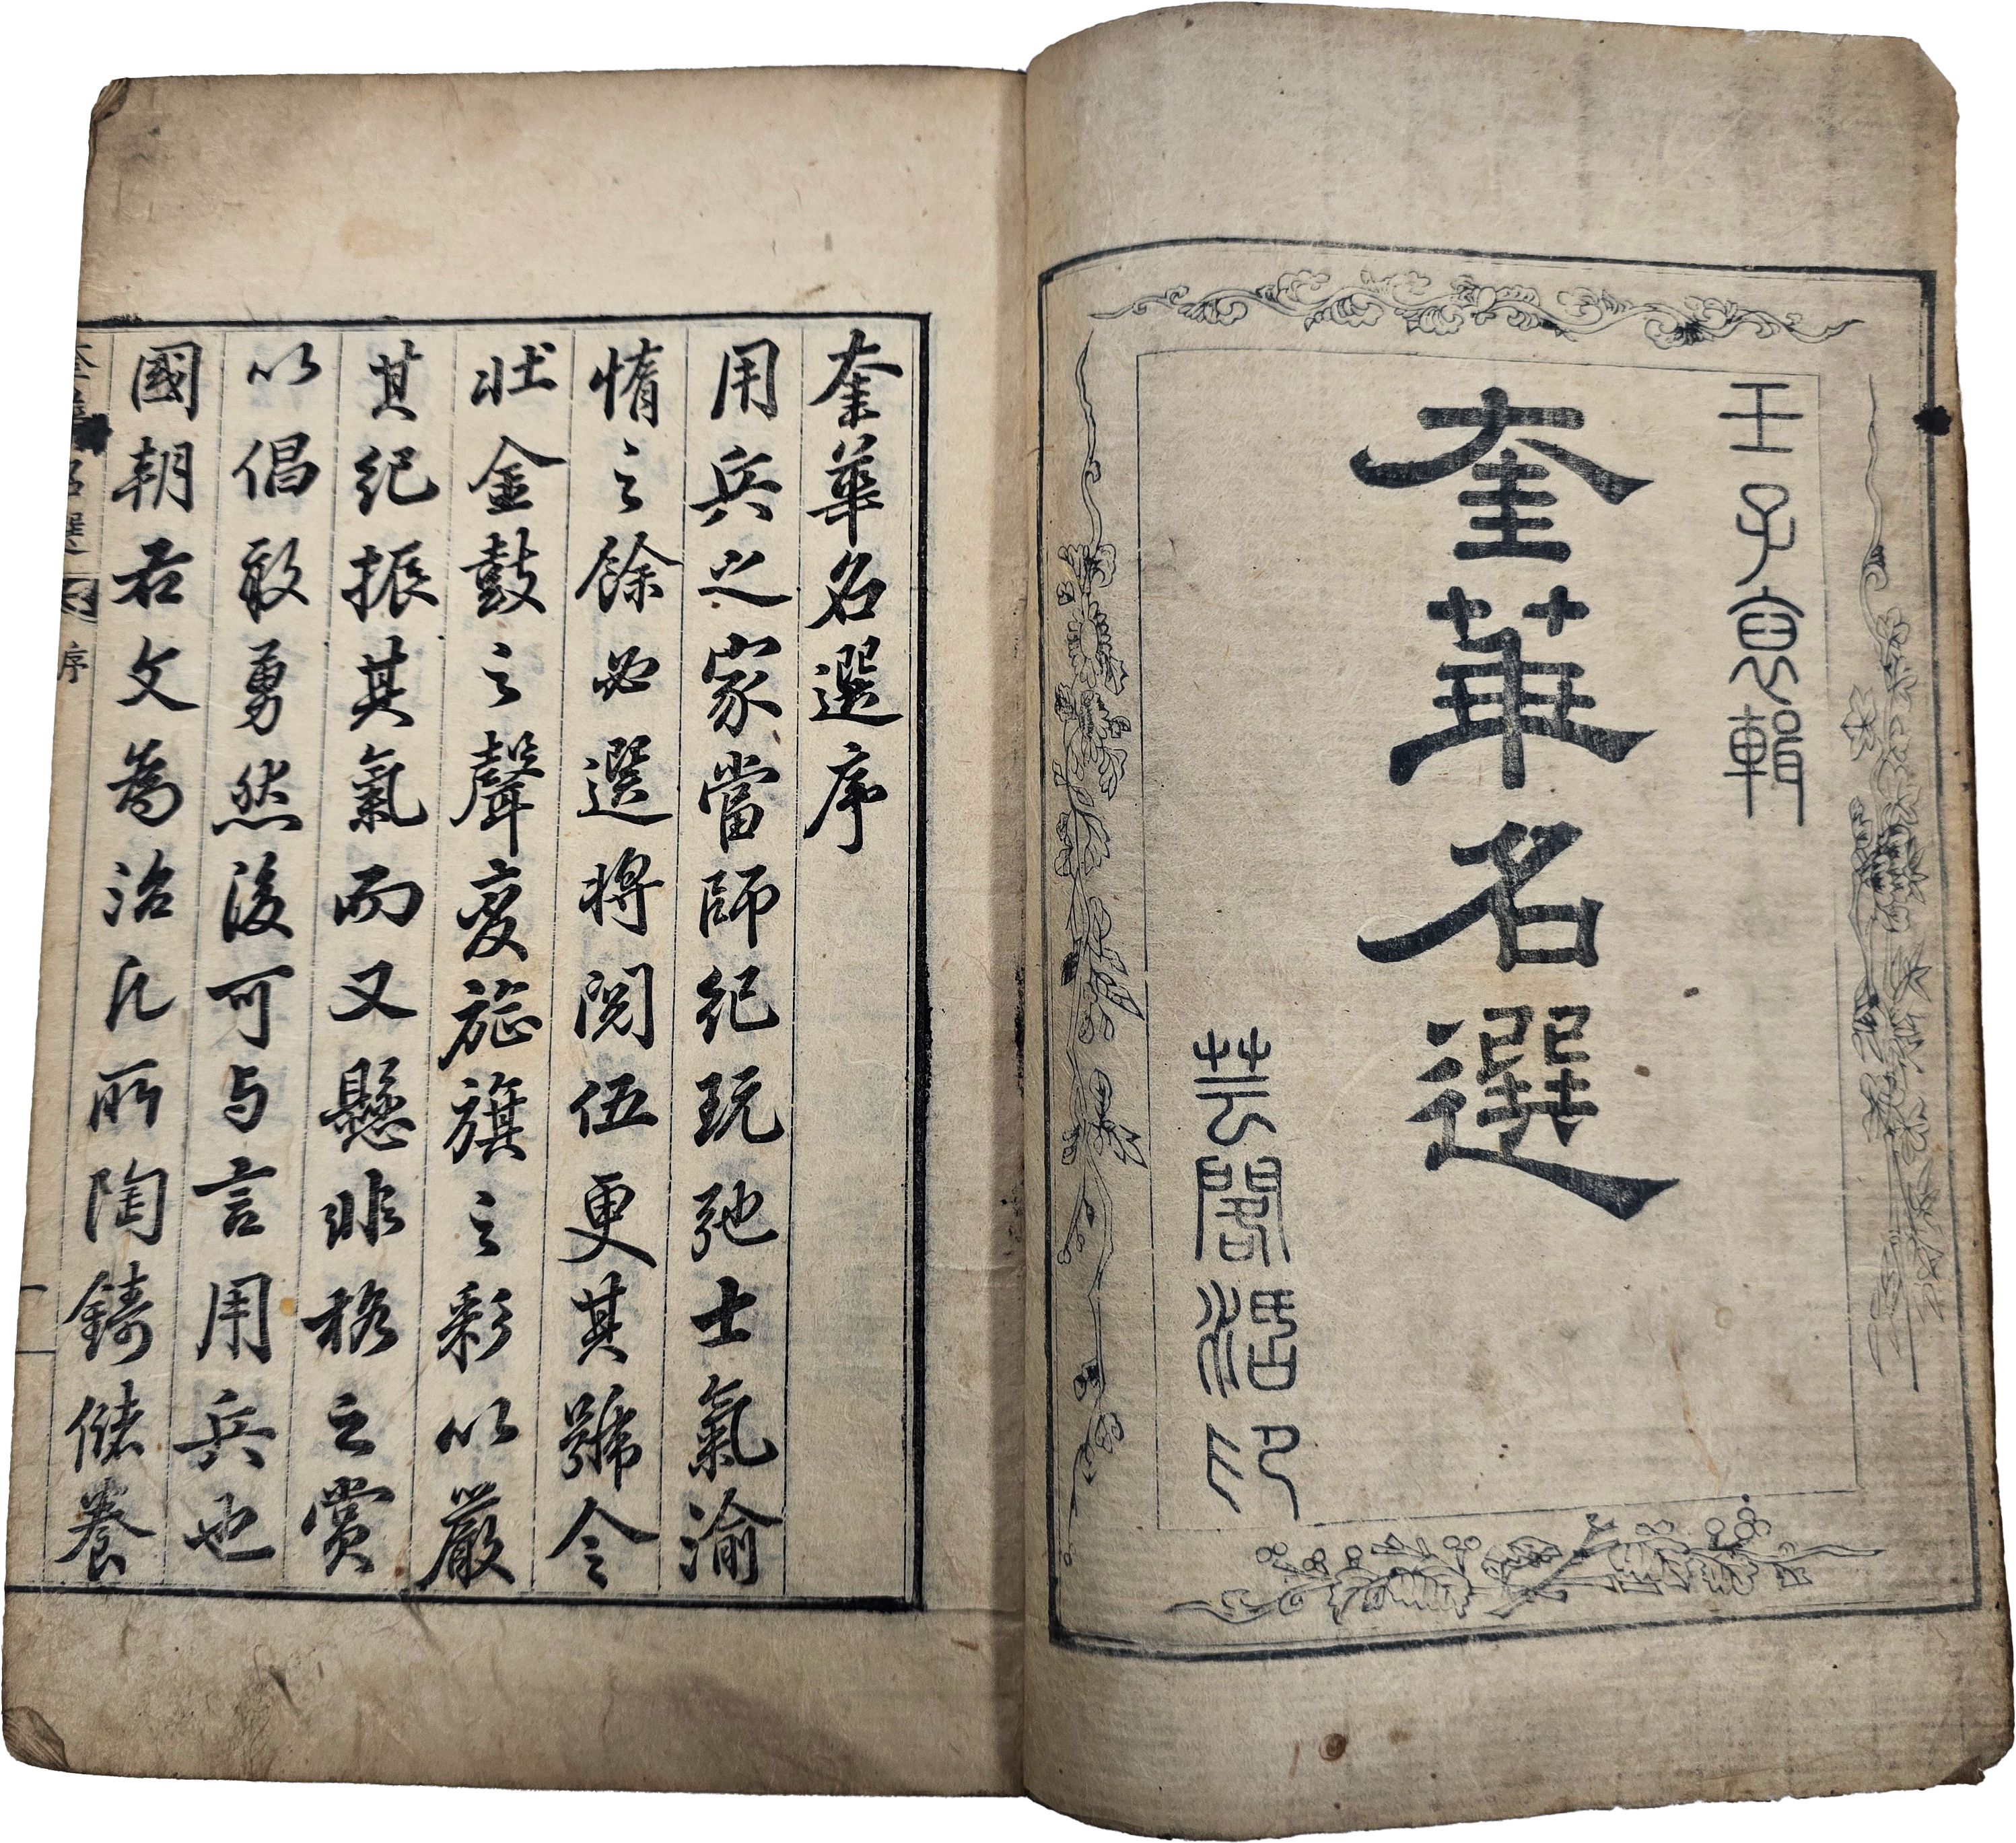 壬子夏輯
奎華名選
芸閣活印
奎華名選序
用兵之家當師紀玩弛士氣渝
惰之餘必選將閱伍更其號令
壯金鼓之聲變旌旗之彩以嚴
其紀振其氣而又懸非格之賞
以倡敢勇然後可与言用兵也
國朝右文為治凡所陶鑄儲養
奎華名選 序 一